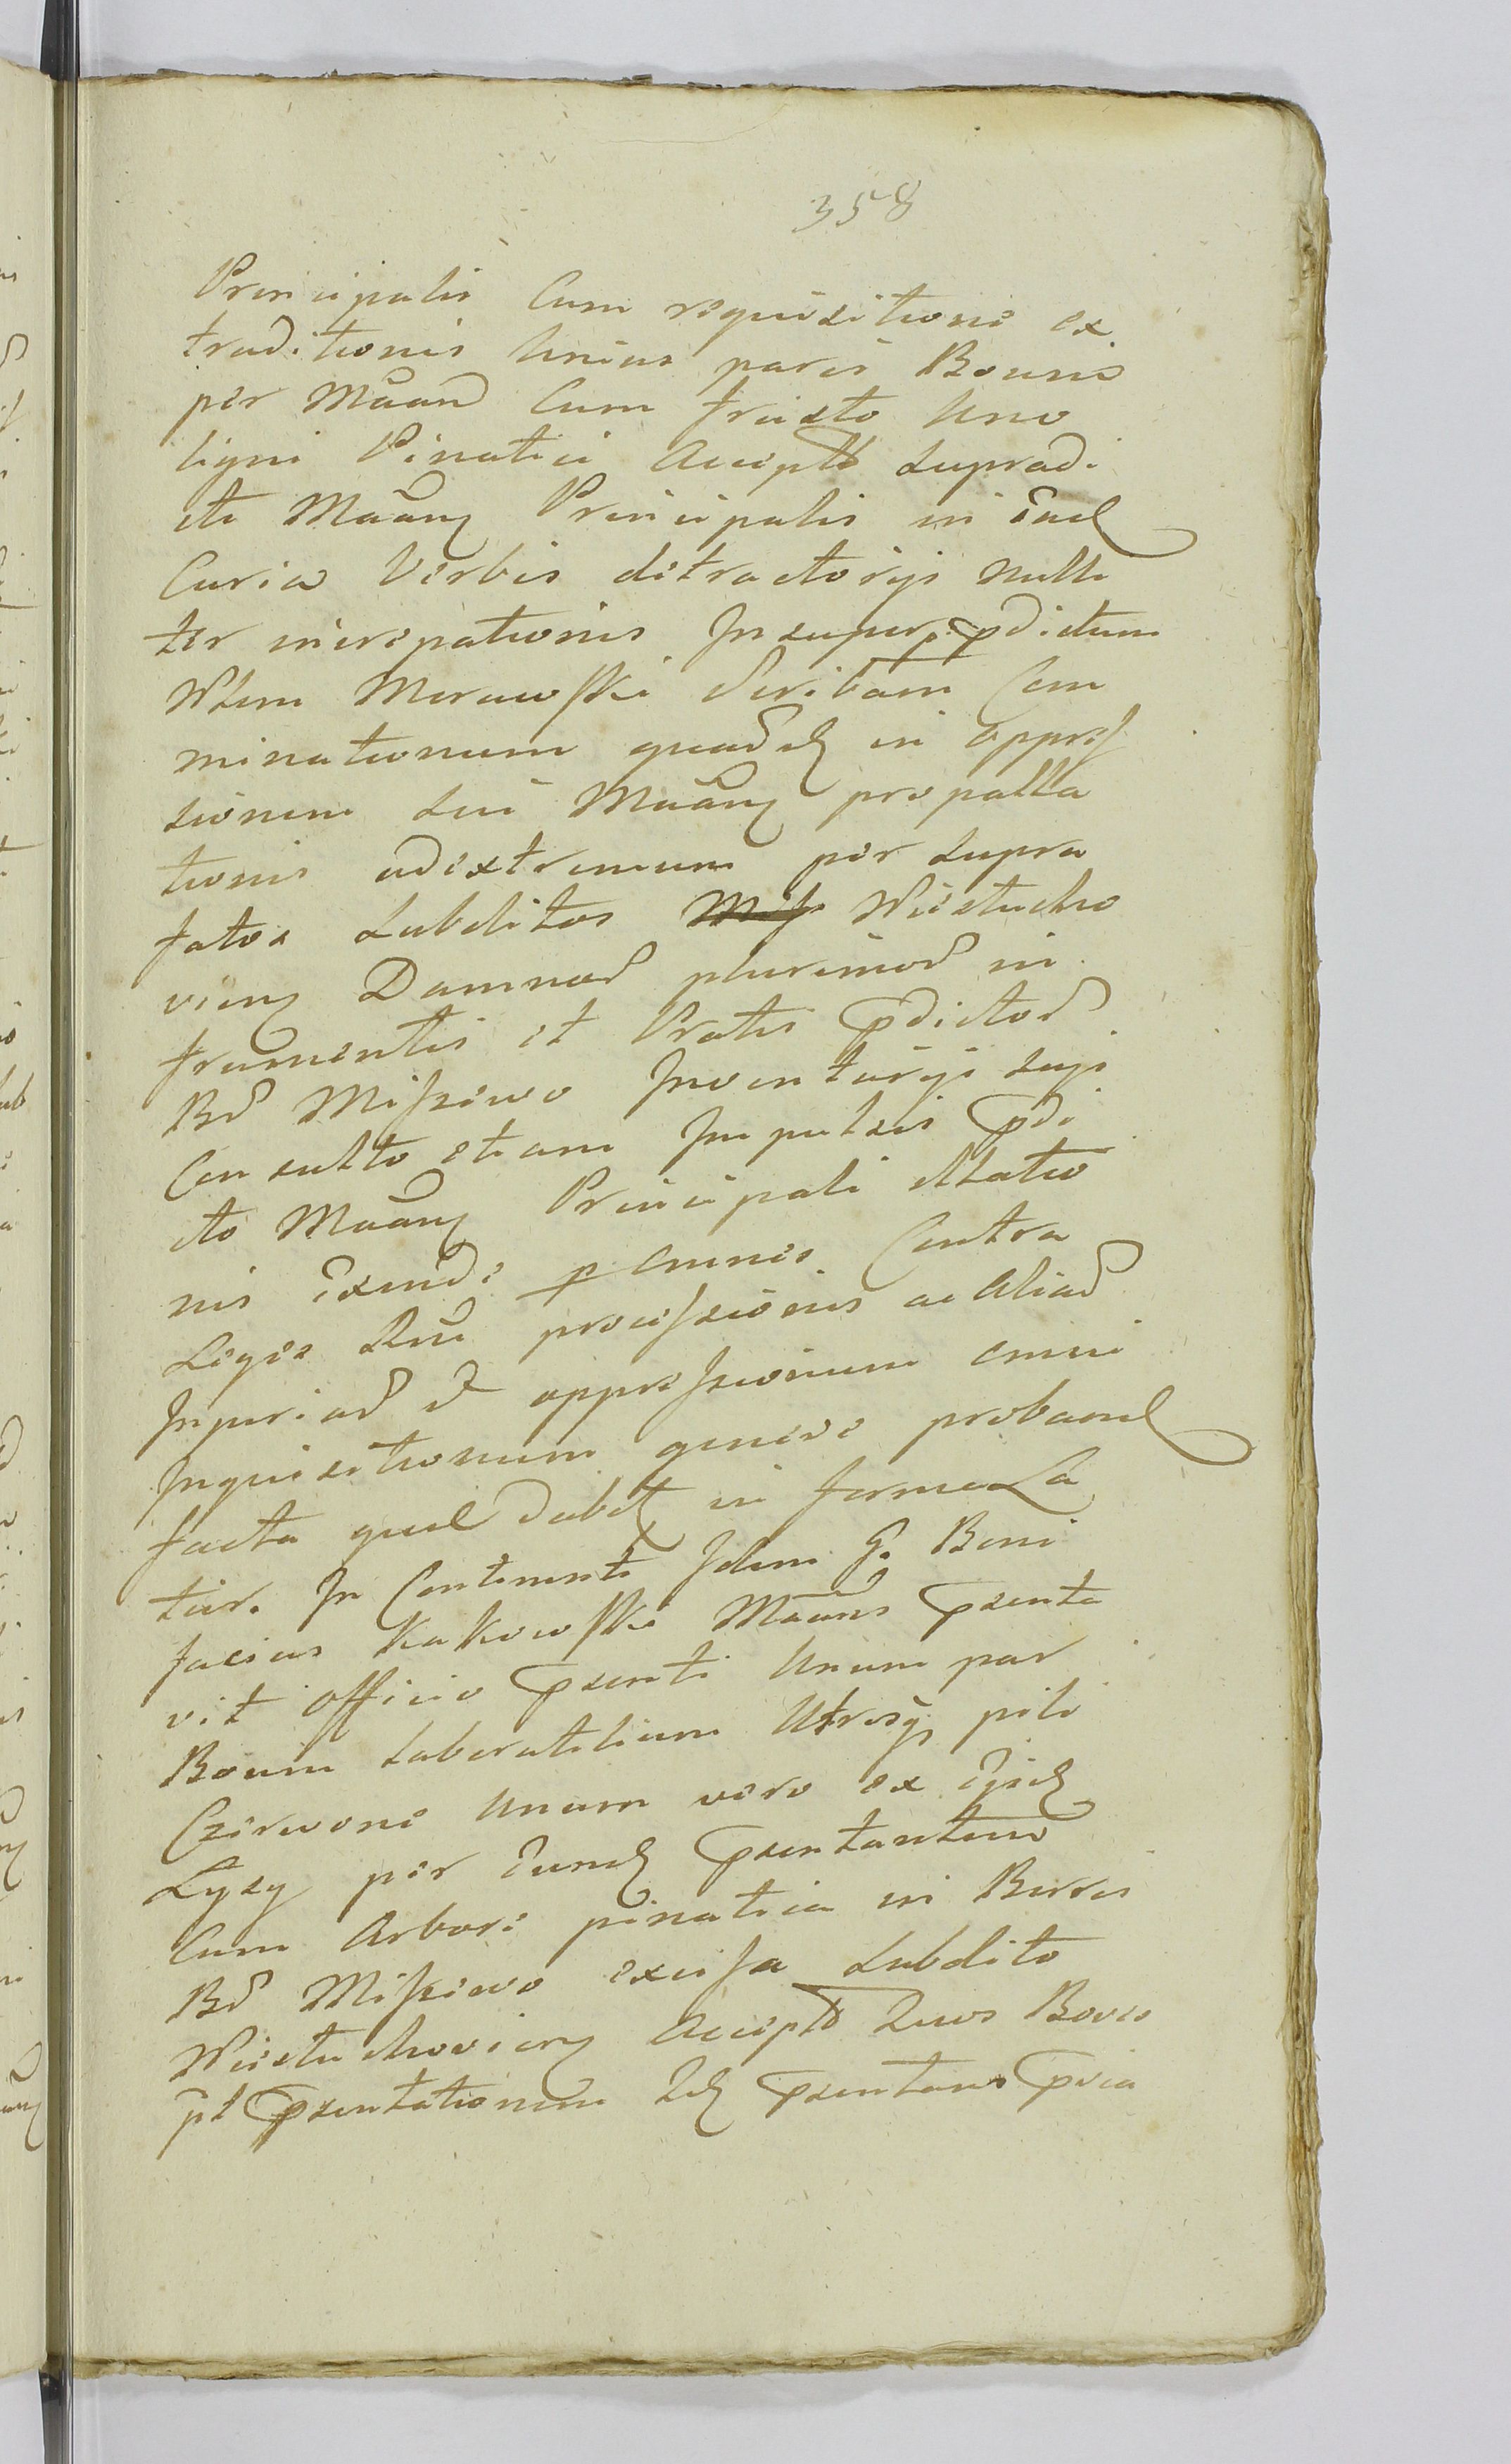 358
Principalis Cum requisitione ex
traditionis Unius paris Boum
per Mãand Cum frusto Uno
ligni Pinatici Accipłd supradi
cti Mãanƺ Principalis in Ead
Curia Verbis detractorijs Multi
ter increpationis Insuper pdictum
Wlem Morawski Scribam Com
minationum quardɉ in oppres
sionem sui Mãanƺ propalla
tionis adextremum per supra
fatos subditos Wiśtucho
vienƺ Damnorɉ plurimorɉ in
frumentis et Pratis pdictorɉ
Brɉ Miszewo Inventarijs sups
Consulto etiam Impulsis pdi
cto Mãanƺ Principali illatio
nis Exinde p omnes Contra
Leges Rni processionis ac Aliarɉ
Injuriarɉ et oppressionum omni
Inquisitionum genere proband
facta quæ dabɉ in forma La
tur. In Continenti Idem G. Boni
facius Kakowski Mãans psenta
vit officio psenti Unum par
Boum Laboratilium Utrosqȝ pili
Czerwone Unum vero ex Ejsdɉ
Lysy per Eundɉ psentantem
Cum Arbore pinatica in Borris
Brɉ Miszewo excisa Subdito
Wiśtuchovienƺ Accipłd Quos Boves
pt psentationem Idɉ psentans pvia